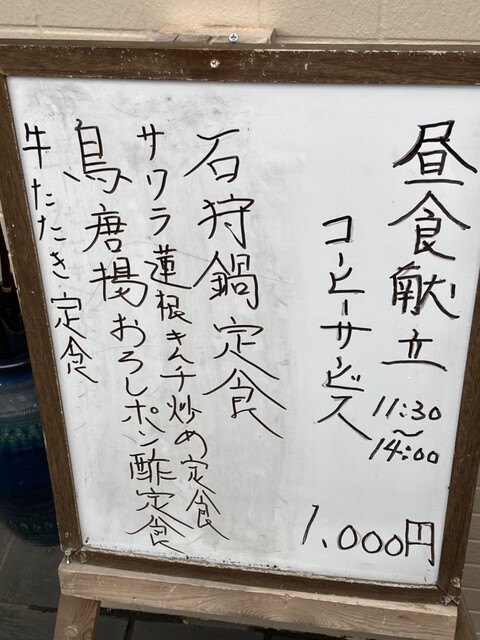 昼食献立
11:30
〜
14:00
コーヒーサービス
1.000円
石狩鍋定食
サワラ蓮根キムチ炒め定食
鳥唐揚おろしポン酢定食
牛たたき定食